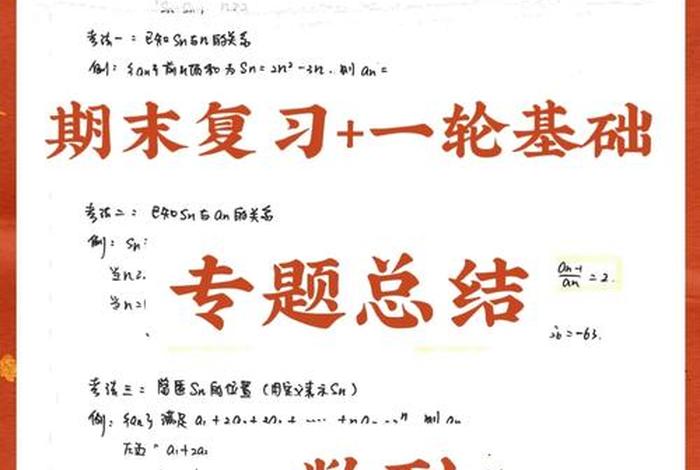 考法一：已知Sn与n的关系
例：{an}前n项和为Sn=2n²-3n，则an=
期末复习+一轮基础
考法二：已知Sn与an的关系
例：Sn
当n≥
专题总结
an-1/an=2
当n=1
=-63.
考法三：隐匿Sn的位置（用定义表示Sn）
例：{an}满足a₁+2a₂+
则an
左边=a₁+2a₂
数列